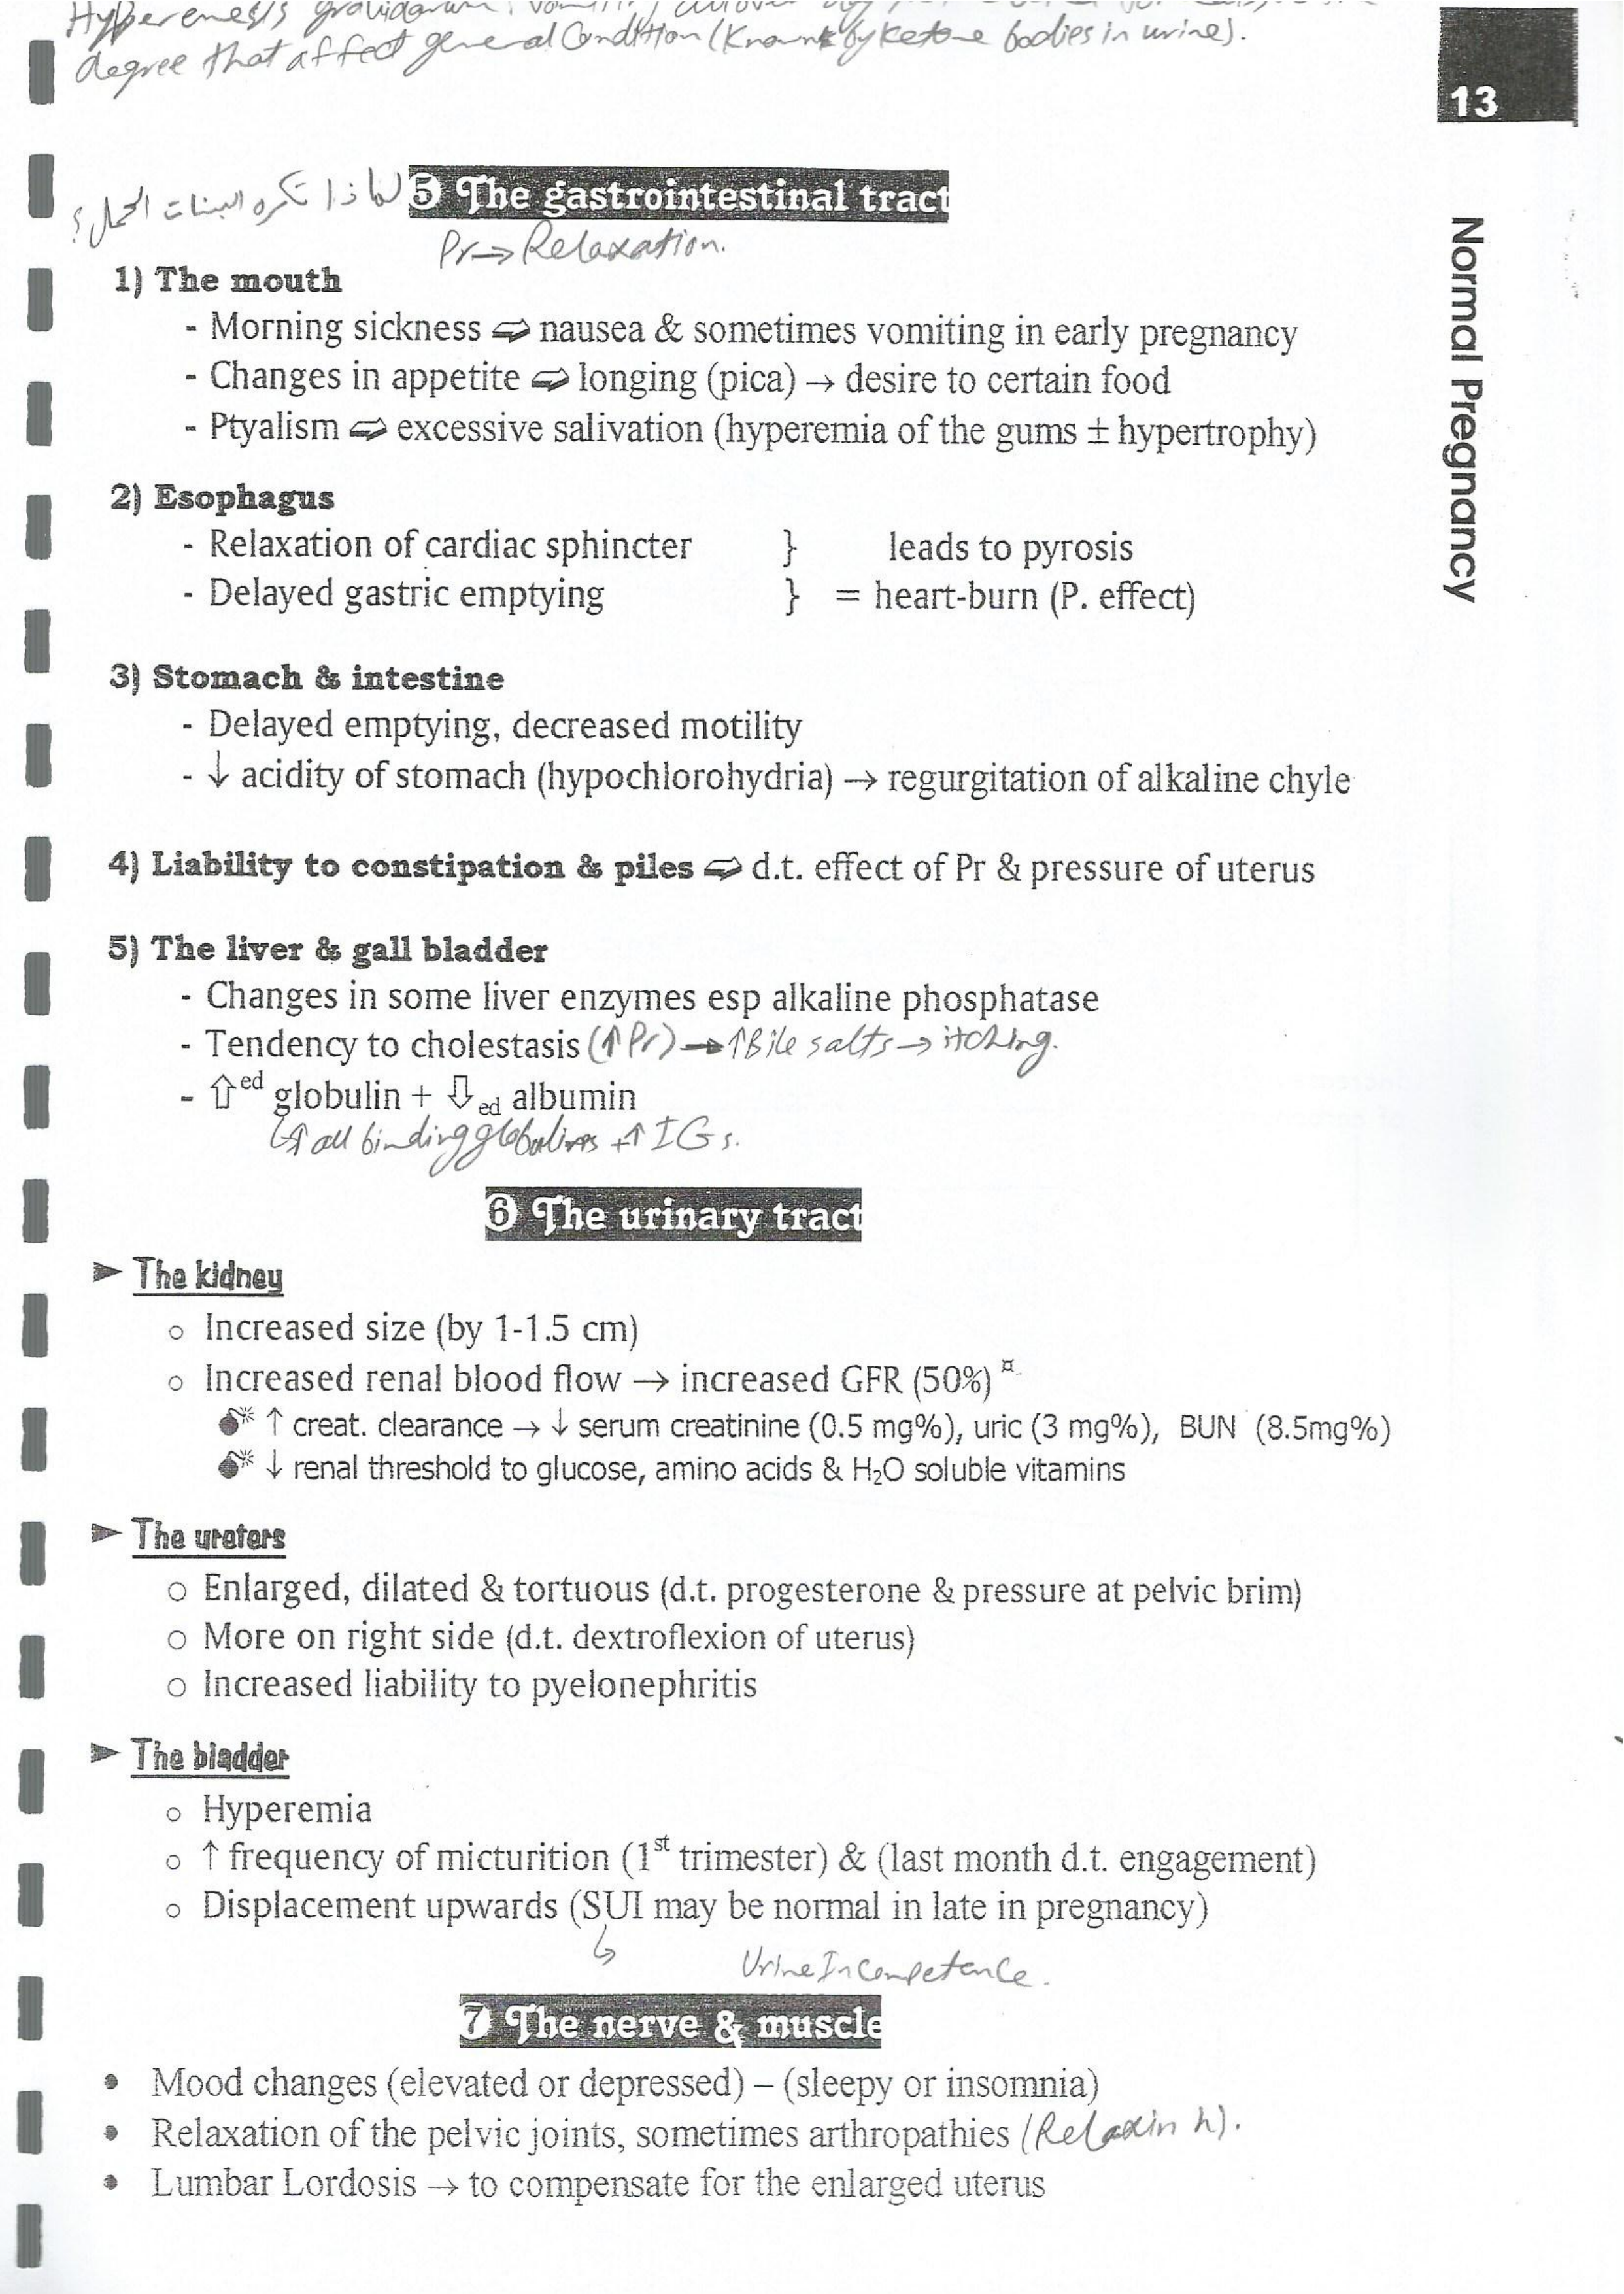 Hyperemesis gravidarum: vomiting
degree that affect general Condition (Known by ketone bodies in urine).
13
Normal Pregnancy
❺ The gastrointestinal tract
لماذا تكره البنات الحمل؟
Pr → Relaxation.
1) The mouth
- Morning sickness ⇨ nausea & sometimes vomiting in early pregnancy
- Changes in appetite ⇨ longing (pica) → desire to certain food
- Ptyalism ⇨ excessive salivation (hyperemia of the gums ± hypertrophy)
2) Esophagus
- Relaxation of cardiac sphincter } leads to pyrosis
- Delayed gastric emptying } = heart-burn (P. effect)
3) Stomach & intestine
- Delayed emptying, decreased motility
- ↓ acidity of stomach (hypochlorohydria) → regurgitation of alkaline chyle
4) Liability to constipation & piles ⇨ d.t. effect of Pr & pressure of uterus
5) The liver & gall bladder
- Changes in some liver enzymes esp alkaline phosphatase
- Tendency to cholestasis (↑ Pr) → ↑ Bile salts → itching.
- ⇧ed globulin + ⇩ed albumin
↳ ↑ all binding globulines + ↑ IGs.
❻ The urinary tract
➤ The kidney
o Increased size (by 1-1.5 cm)
o Increased renal blood flow → increased GFR (50%) ¤
💣 ↑ creat. clearance → ↓ serum creatinine (0.5 mg%), uric (3 mg%), BUN (8.5mg%)
💣 ↓ renal threshold to glucose, amino acids & H₂O soluble vitamins
➤ The ureters
o Enlarged, dilated & tortuous (d.t. progesterone & pressure at pelvic brim)
o More on right side (d.t. dextroflexion of uterus)
o Increased liability to pyelonephritis
➤ The bladder
o Hyperemia
o ↑ frequency of micturition (1st trimester) & (last month d.t. engagement)
o Displacement upwards (SUI may be normal in late in pregnancy)
↳ Urine Incompetence.
❼ The nerve & muscle
• Mood changes (elevated or depressed) – (sleepy or insomnia)
• Relaxation of the pelvic joints, sometimes arthropathies (Relaxin h).
• Lumbar Lordosis → to compensate for the enlarged uterus